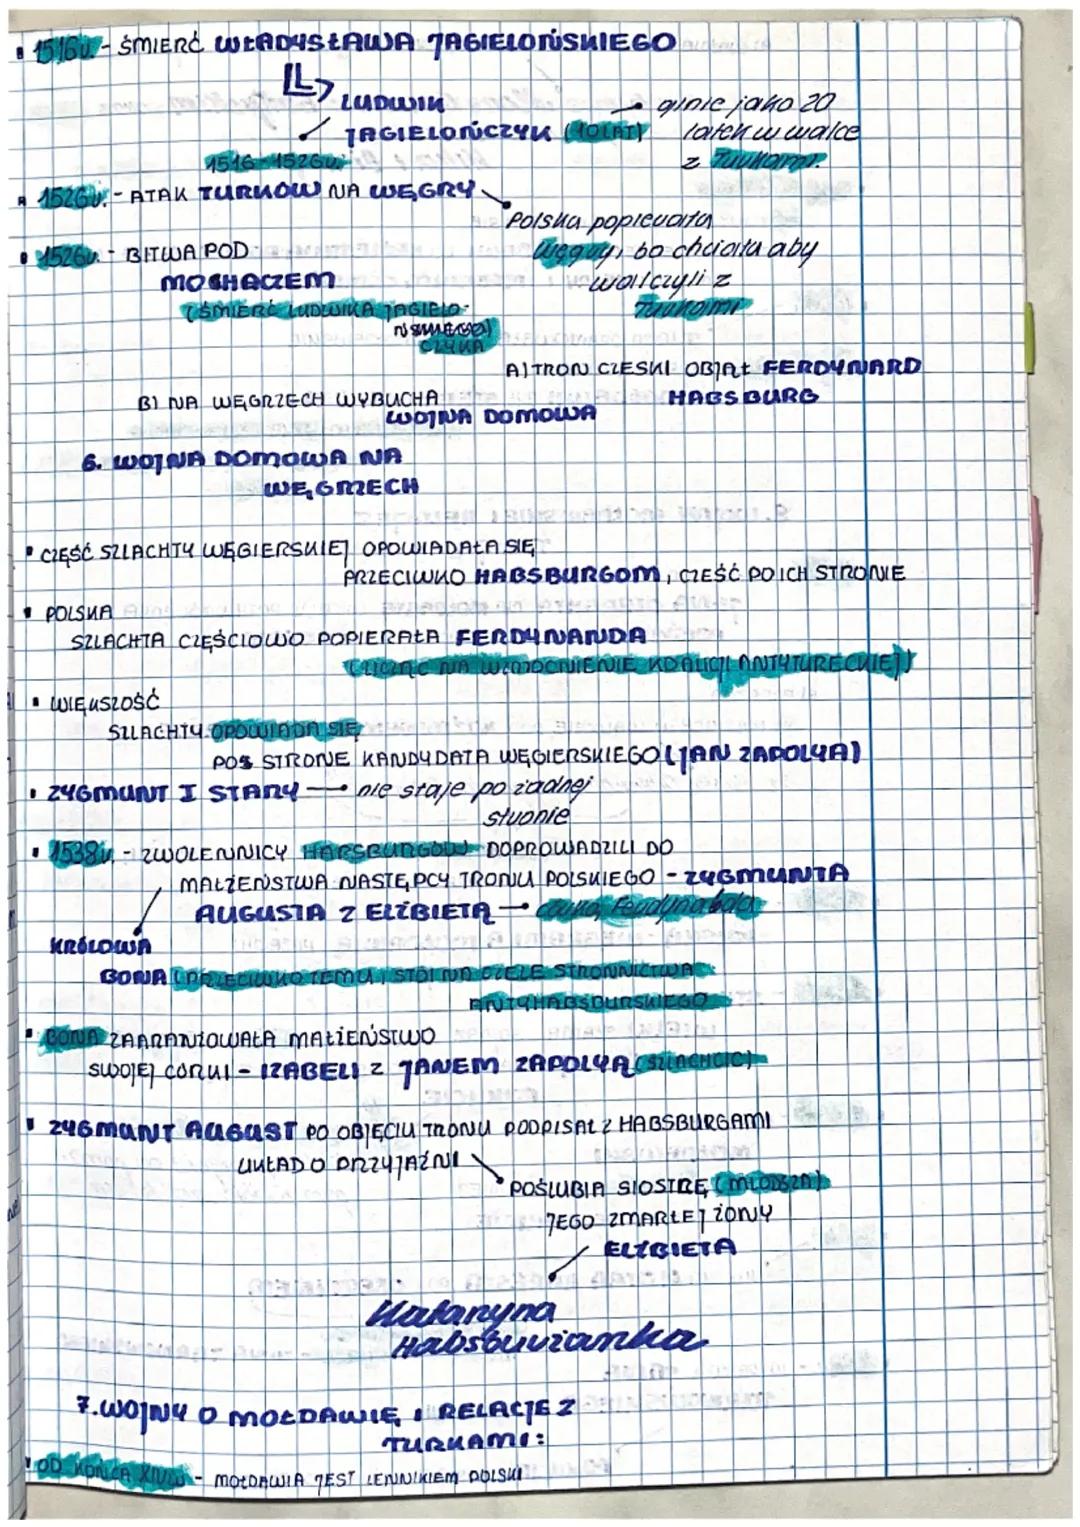 1516r. - ŚMIERĆ WŁADYSŁAWA JAGIELOŃSKIEGO
LUDWIK
JAGIELOŃCZYK (10 LAT)
ginie jako 20
latek w walce
z Turkami.
1516-1526r.
1526r. - ATAK TURKÓW NA WĘGRY
Polska popierała
Węgry, bo chciała aby
walczyli z
Turkami
1526r. - BITWA POD
MOCHACZEM
(ŚMIERĆ LUDWIKA JAGIELO-
CZYKA
A) TRON CZESKI OBJĄŁ FERDYNARD
HABSBURG
B) NA WĘGRZECH WYBUCHA
WOJNA DOMOWA
6. WOJNA DOMOWA NA
WĘGRZECH
CZĘŚĆ SZLACHTY WĘGIERSKIEJ OPOWIADAŁA SIĘ
PRZECIWKO HABSBURGOM, CZEŚĆ PO ICH STRONIE
POLSKA
SZLACHTA CZĘŚCIOWO POPIERAŁA FERDYNANDA
(LICZĄC NA WZMOCNIENIE KOALICJI ANTYTURECKIEJ)
WIĘKSZOŚĆ
SZLACHTY OPOWIADA SIĘ
PO STRONE KANDYDATA WĘGIERSKIEGO (JAN ZAPOLYA)
ZYGMUNT I STARY → nie staje po żadnej
stronie
1538r. - ZWOLENNICY HABSBURGÓW DOPROWADZILI DO
MAŁŻENSTWA NASTĘPCY TRONU POLSKIEGO - ZYGMUNTA
AUGUSTA Z ELŻBIETĄ → córką Ferdynanda
KRÓLOWA
BONA (PRZECIWKO TEMU, STOI NA CZELE STRONNICTWA
ANTYHABSBURSKIEGO
BONA ZAARANŻOWAŁA MAŁŻEŃSTWO
SWOJEJ CÓRKI - IZABELI Z JANEM ZAPOLYA (SZLACHCIC)
ZYGMUNT AUGUST PO OBJĘCIU TRONU PODPISAŁ Z HABSBURGAMI
UKŁAD O PRZYJAŹNI
POŚLUBIA SIOSTRĘ (MŁODSZA)
JEGO ZMARŁEJ ŻONY
ELŻBIETA
Katarzyna
Habsburżanka
7. WOJNY O MOŁDAWIĘ I RELACJE Z
TURKAMI:
OD KOŃCA XIVw - MOŁDAWIA JEST LENNIKIEM POLSKI